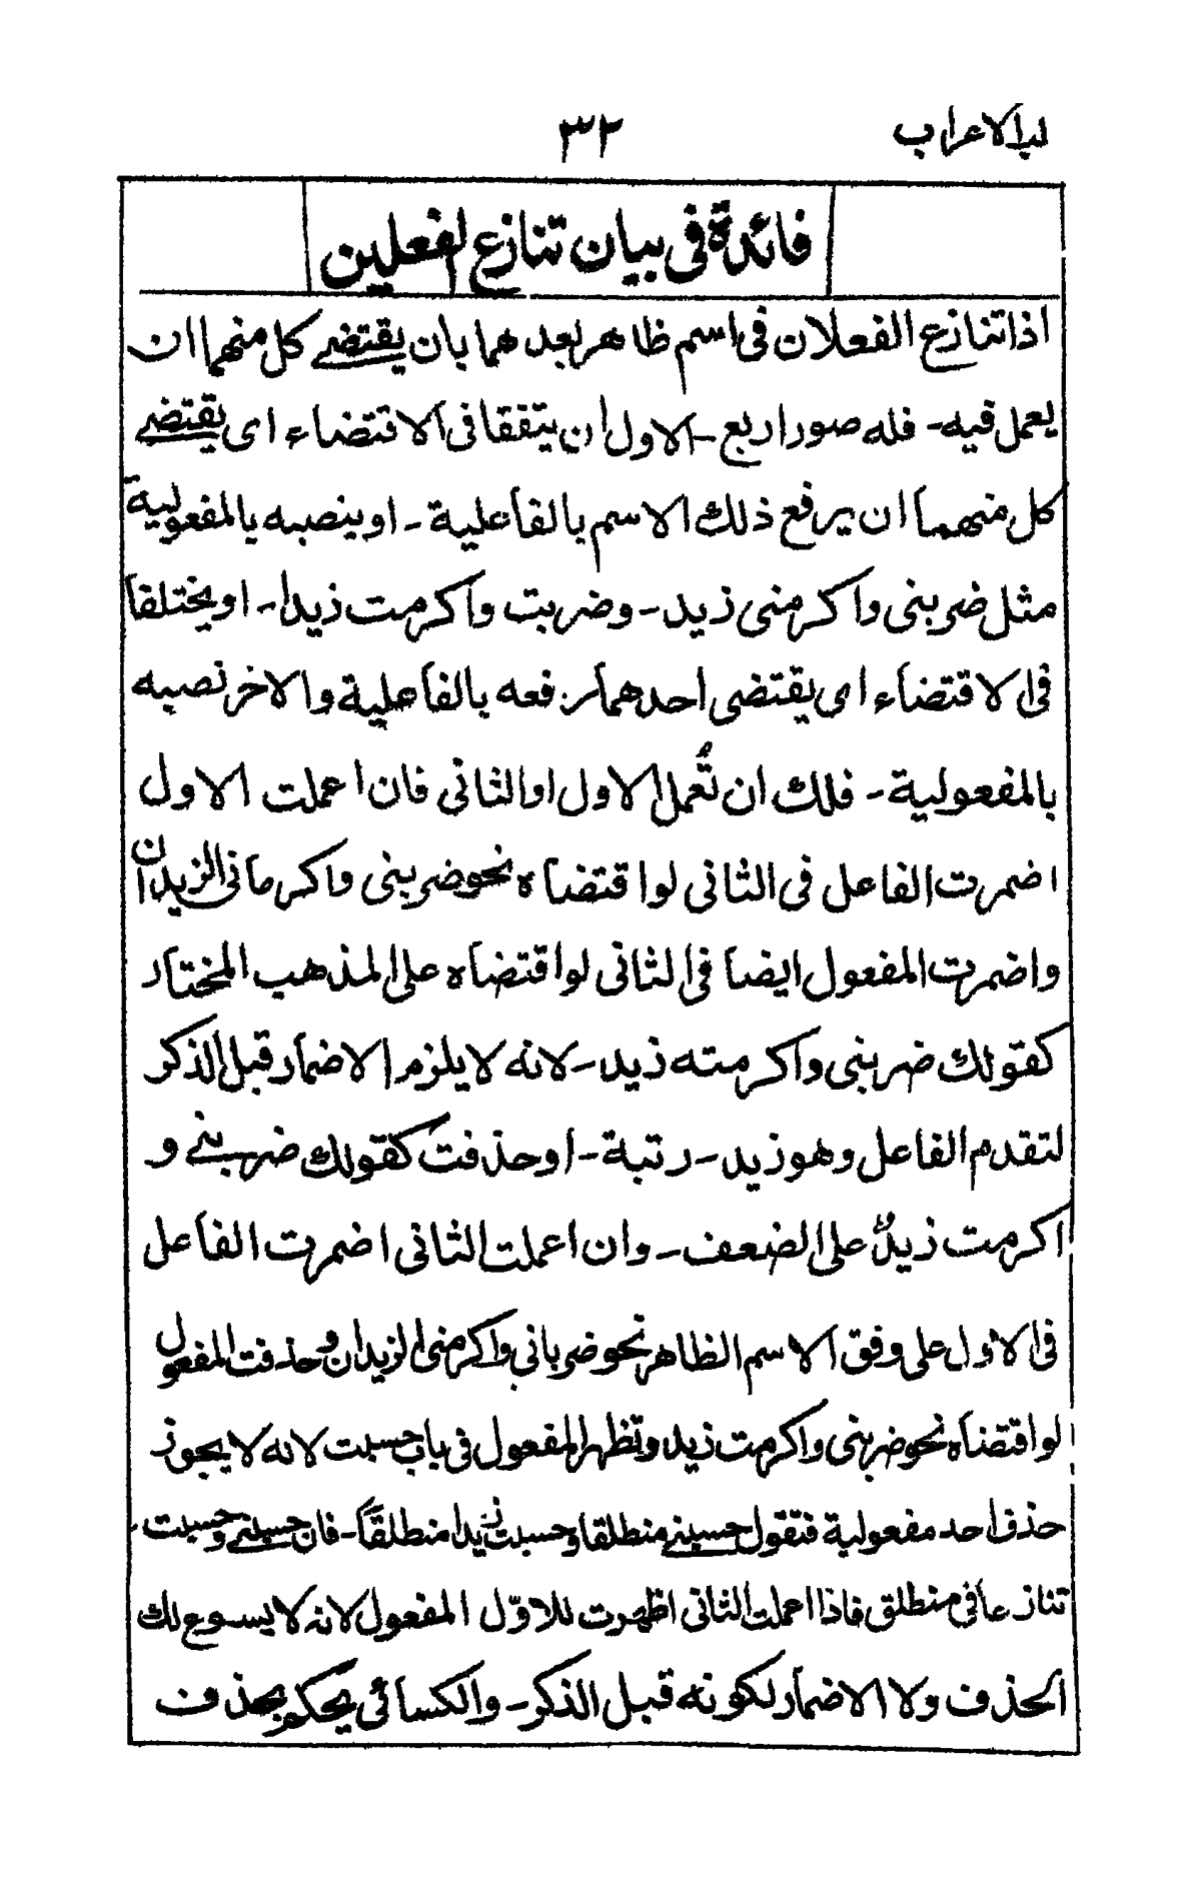 لب الاعراب
٣٢
فائدة فى بيان تنازع الفعلين
اذا تنازع الفعلان فى اسم ظاهر بعدهما بان يقتضے كل منهما ان
يعمل فيه - فله صور اربع - الاول ان يتفقا فى الاقتضاء اى يقتضے
كل منهما ان يرفع ذلك الاسم بالفاعلية - او ينصبه بالمفعولية
مثل ضربنى واكرمنى زيد - وضربت واكرمت زيدا - او يختلفا
فى الاقتضاء اى يقتضى احدهما رفعه بالفاعلية والاخر نصبه
بالمفعولية - فلك ان تُعمل الاول او الثانى فان اعملت الاول
اضمرت الفاعل فى الثانى لو اقتضاه نحو ضربنى واكرمانى الزيدان
واضمرت المفعول ايضا فى الثانى لو اقتضاه على المذهب المختار
كقولك ضربنى واكرمته زيد - لانه لا يلزم الاضمار قبل الذكر
لتقدم الفاعل وهو زيد - رتبة - او حذفت كقولك ضربنے و
اكرمت زيدٌ على الضعف - وان اعملت الثانى اضمرت الفاعل
فى الاول على وفق الاسم الظاهر نحو ضربانى واكرمنى الزيدان وحذفت المفعول
لو اقتضاه نحو ضربنى واكرمت زيد وتظهر المفعول فى باب حسبت لانه لا يجوز
حذف احد مفعولية فتقول حسبنے منطلقا وحسبت زيدا منطلقاً - فان حسبنے وحسبت -
تنازعا فى منطلق فاذا اعملت الثانى اظهرت للاوّل المفعول لانه لا يسوع لك
الحذف ولا الاضمار لكونه قبل الذكر - والكسائى يحكم بحذف